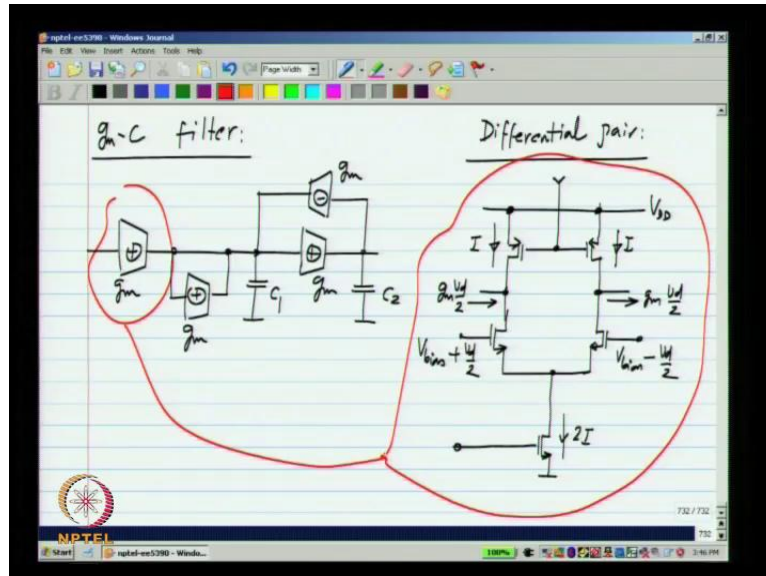 nptel-ee5390 - Windows Journal
File Edit View Insert Actions Tools Help
Page Width
gm-C filter:
Differential pair:
gm
VDD
I
I
gm
gm
gm
C1
C2
gm vd/2
gm vd/2
Vbias + vd/2
Vbias - vd/2
2I
NPTEL
732 / 732
732
Start
nptel-ee5390 - Windo...
100%
3:46 PM